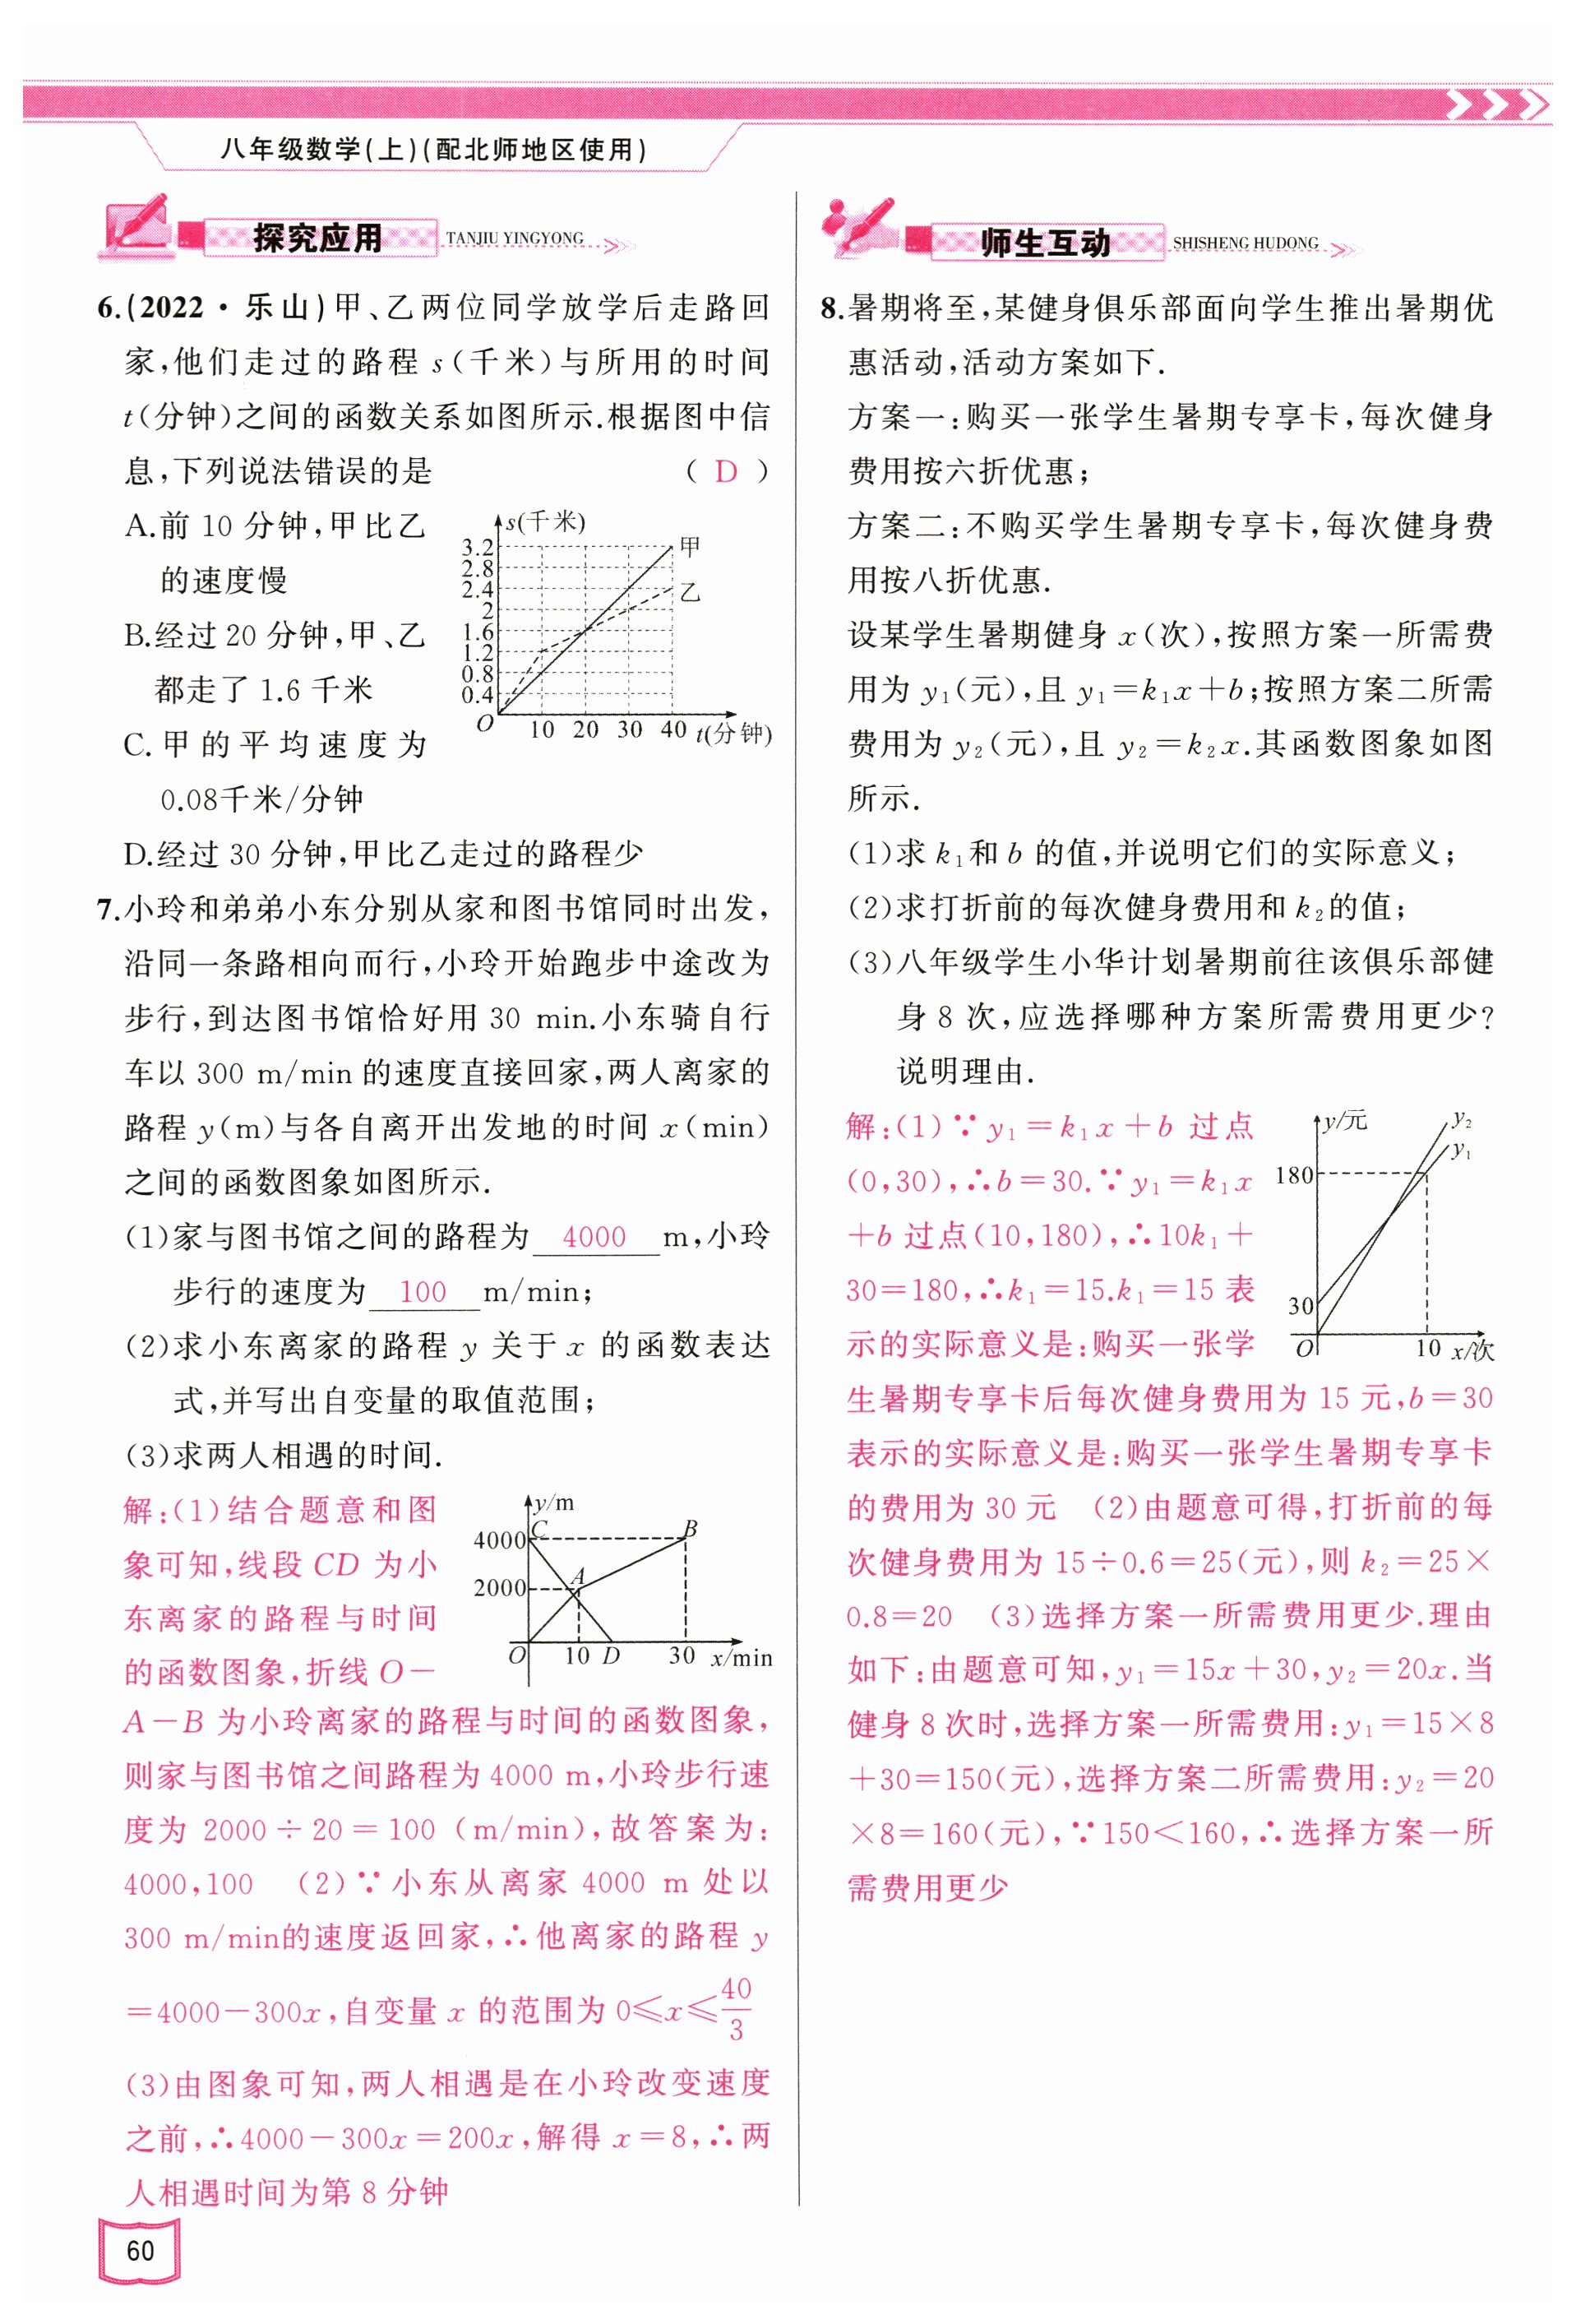 八年级数学(上)(配北师地区使用)
探究应用 TANJIU YINGYONG
6.(2022·乐山)甲、乙两位同学放学后走路回
家,他们走过的路程 s(千米)与所用的时间
t(分钟)之间的函数关系如图所示.根据图中信
息,下列说法错误的是 ( D )
A.前 10 分钟,甲比乙
的速度慢
B.经过 20 分钟,甲、乙
都走了 1.6 千米
C.甲的平均速度为
0.08千米/分钟
D.经过 30 分钟,甲比乙走过的路程少
s(千米)
3.2
2.8
2.4
2
1.6
1.2
0.8
0.4
甲
乙
O 10 20 30 40 t(分钟)
7.小玲和弟弟小东分别从家和图书馆同时出发,
沿同一条路相向而行,小玲开始跑步中途改为
步行,到达图书馆恰好用 30 min.小东骑自行
车以 300 m/min 的速度直接回家,两人离家的
路程 y(m)与各自离开出发地的时间 x(min)
之间的函数图象如图所示.
(1)家与图书馆之间的路程为 4000 m,小玲
步行的速度为 100 m/min;
(2)求小东离家的路程 y 关于 x 的函数表达
式,并写出自变量的取值范围;
(3)求两人相遇的时间.
解:(1)结合题意和图
象可知,线段 CD 为小
东离家的路程与时间
的函数图象,折线 O—
A—B 为小玲离家的路程与时间的函数图象,
则家与图书馆之间路程为 4000 m,小玲步行速
度为 2000÷20=100 (m/min),故答案为:
4000,100 (2)∵小东从离家 4000 m 处以
300 m/min的速度返回家,∴他离家的路程 y
=4000-300x,自变量 x 的范围为 0≤x≤40/3
(3)由图象可知,两人相遇是在小玲改变速度
之前,∴4000-300x=200x,解得 x=8,∴两
人相遇时间为第 8 分钟
y/m
4000 C B
2000 A
O 10 D 30 x/min
60
师生互动 SHISHENG HUDONG
8.暑期将至,某健身俱乐部面向学生推出暑期优
惠活动,活动方案如下.
方案一:购买一张学生暑期专享卡,每次健身
费用按六折优惠;
方案二:不购买学生暑期专享卡,每次健身费
用按八折优惠.
设某学生暑期健身 x(次),按照方案一所需费
用为 y₁(元),且 y₁=k₁x+b;按照方案二所需
费用为 y₂(元),且 y₂=k₂x.其函数图象如图
所示.
(1)求 k₁和 b 的值,并说明它们的实际意义;
(2)求打折前的每次健身费用和 k₂的值;
(3)八年级学生小华计划暑期前往该俱乐部健
身 8 次,应选择哪种方案所需费用更少?
说明理由.
解:(1)∵y₁=k₁x+b 过点
(0,30),∴b=30.∵y₁=k₁x
+b 过点(10,180),∴10k₁+
30=180,∴k₁=15.k₁=15 表
示的实际意义是:购买一张学
生暑期专享卡后每次健身费用为 15 元,b=30
表示的实际意义是:购买一张学生暑期专享卡
的费用为 30 元 (2)由题意可得,打折前的每
次健身费用为 15÷0.6=25(元),则 k₂=25×
0.8=20 (3)选择方案一所需费用更少.理由
如下:由题意可知,y₁=15x+30,y₂=20x.当
健身 8 次时,选择方案一所需费用:y₁=15×8
+30=150(元),选择方案二所需费用:y₂=20
×8=160(元),∵150<160,∴选择方案一所
需费用更少
y/元
y₂
y₁
180
30
O 10 x/次